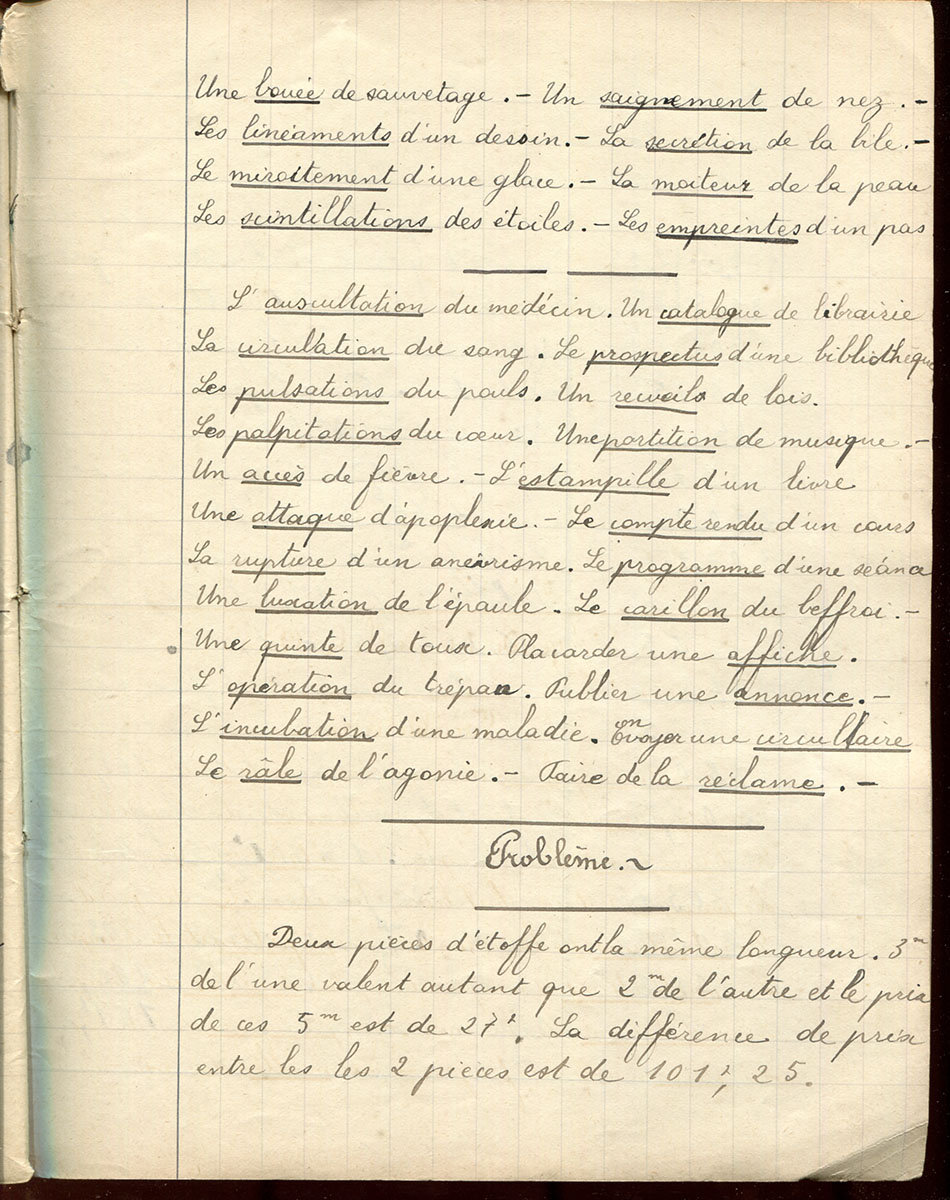 Une bouée de sauvetage. - Un saignement de nez. -
Les linéaments d'un dessin. - La secrétion de la bile. -
Le miroitement d'une glace. - La moiteur de la peau
Les scintillations des étoiles. - Les empreintes d'un pas
L'auscultation du médécin. Un catalogue de librairie
La circulation du sang. Le prospectus d'une bibliothèque
Les pulsations du pouls. Un recueils de lois.
Les palpitations du cœur. Une partition de musique. -
Un accès de fièvre. - L'estampille d'un livre
Une attaque d'apoplexie. - Le compte rendu d'un cours
La rupture d'un anévrisme. Le programme d'une séance
Une luxation de l'épaule. Le carillon du beffroi. -
Une quinte de toux. Placarder une affiche.
L'opération du trépan. Publier une annonce. -
L'incubation d'une maladie. Envoyer une circullaire
Le râle de l'agonie. - Faire de la réclame. -
Problème. ~
Deux pièces d'étoffe ont la même longueur. 3m
de l'une valent autant que 2m de l'autre et le prix
de ces 5m est de 27f. La différence de prix
entre les les 2 pièces est de 101f, 25.